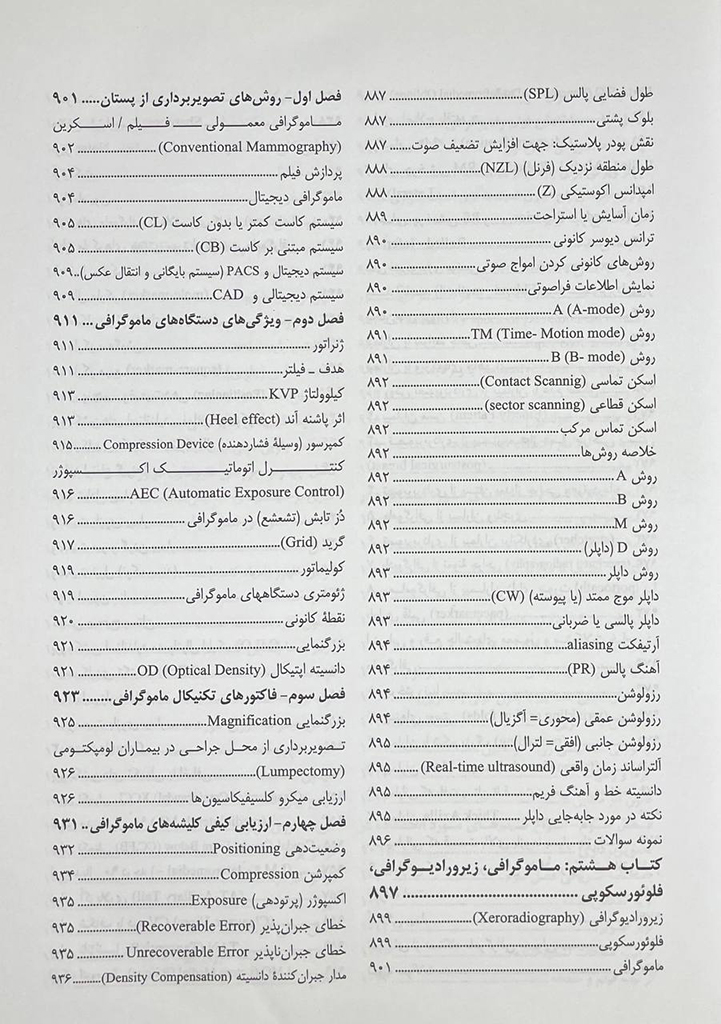 طول فضایی پالس (SPL)..........۸۸۷
بلوک پشتی..........۸۸۷
نقش پودر پلاستیک: جهت افزایش تضعیف صوت......۸۸۷
طول منطقه نزدیک (فرنل) (NZL)..........۸۸۸
امپدانس اکوستیکی (Z)..........۸۸۸
زمان آسایش یا استراحت..........۸۸۹
ترانس دیوسر کانونی..........۸۹۰
روش‌های کانونی کردن امواج صوتی..........۸۹۰
نمایش اطلاعات فراصوتی..........۸۹۰
روش A (A-mode)..........۸۹۰
روش TM (Time- Motion mode)..........۸۹۱
روش B (B- mode)..........۸۹۱
اسکن تماسی (Contact Scannig)..........۸۹۲
اسکن قطاعی (sector scanning)..........۸۹۲
اسکن تماس مرکب..........۸۹۲
خلاصه روش‌ها..........۸۹۲
روش A..........۸۹۲
روش B..........۸۹۲
روش M..........۸۹۲
روش D (داپلر)..........۸۹۲
روش داپلر..........۸۹۳
داپلر موج ممتد (یا پیوسته) (CW)..........۸۹۳
داپلر پالسی یا ضربانی..........۸۹۳
آرتیفکت aliasing..........۸۹۴
آهنگ پالس (PR)..........۸۹۴
رزولوشن..........۸۹۴
رزولوشن عمقی (محوری= اگزیال)..........۸۹۴
رزولوشن جانبی (افقی= لترال)..........۸۹۵
آلتراساند زمان واقعی (Real-time ultrasound) ......۸۹۵
دانسیته خط و آهنگ فریم..........۸۹۵
نکته در مورد جابه‌جایی داپلر..........۸۹۵
نمونه سوالات..........۸۹۶
کتاب هشتم: ماموگرافی، زیرورادیوگرافی،
فلوئورسکوپی..........۸۹۷
زیرورادیوگرافی (Xeroradiography)..........۸۹۹
فلوئورسکوپی..........۸۹۹
ماموگرافی..........۹۰۱
فصل اول- روش‌های تصویربرداری از پستان.....۹۰۱
ماموگرافی معمولی ـ فیلم / اسکرین
(Conventional Mammography)..........۹۰۲
پردازش فیلم..........۹۰۴
ماموگرافی دیجیتال..........۹۰۴
سیستم کاست کمتر یا بدون کاست (CL)..........۹۰۵
سیستم مبتنی بر کاست (CB)..........۹۰۵
سیستم دیجیتال و PACS (سیستم بایگانی و انتقال عکس)..۹۰۹
سیستم دیجیتالی و CAD..........۹۰۹
فصل دوم- ویژگی‌های دستگاه‌های ماموگرافی...۹۱۱
ژنراتور..........۹۱۱
هدف ـ فیلتر..........۹۱۱
کیلوولتاژ KVP..........۹۱۳
اثر پاشنه آند (Heel effect)..........۹۱۳
کمپرسور (وسیلهٔ فشاردهنده) Compression Device..........۹۱۵
کنترل اتوماتیک اکسپوژر
AEC (Automatic Exposure Control)..........۹۱۶
دُز تابش (تشعشع) در ماموگرافی..........۹۱۶
گرید (Grid)..........۹۱۷
کولیماتور..........۹۱۹
ژئومتری دستگاههای ماموگرافی..........۹۱۹
نقطهٔ کانونی..........۹۲۰
بزرگنمایی..........۹۲۱
دانسیته اپتیکال OD (Optical Density)..........۹۲۱
فصل سوم- فاکتورهای تکنیکال ماموگرافی........۹۲۳
بزرگنمایی Magnification..........۹۲۵
تصویربرداری از محل جراحی در بیماران لومپکتومی
(Lumpectomy)..........۹۲۶
ارزیابی میکرو کلسیفیکاسیون‌ها..........۹۲۶
فصل چهارم- ارزیابی کیفی کلیشه‌های ماموگرافی..۹۳۱
وضعیت‌دهی Positioning..........۹۳۲
کمپرشن Compression..........۹۳۴
اکسپوژر (پرتودهی) Exposure..........۹۳۵
خطای جبران‌پذیر (Recoverable Error)..........۹۳۵
خطای جبران‌ناپذیر Unrecoverable Error..........۹۳۵
مدار جبران‌کنندهٔ دانسیته (Density Compensation)..........۹۳۶